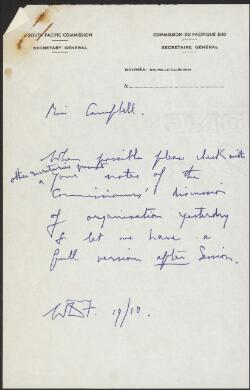 SOUTH PACIFIC COMMISSION
SECRETARY GENERAL
COMMISSION DU PACIFIQUE SUD
SECRÉTAIRE GÉNÉRAL
NOUMÉA: NOUVELLE-CALÉDONIE
le
Miss Campbell.
When possible please check with
other secretaries present
& your notes of the
Commissioners' discussion
of organisation yesterday
& let me have a
full version after Session.
19/10.